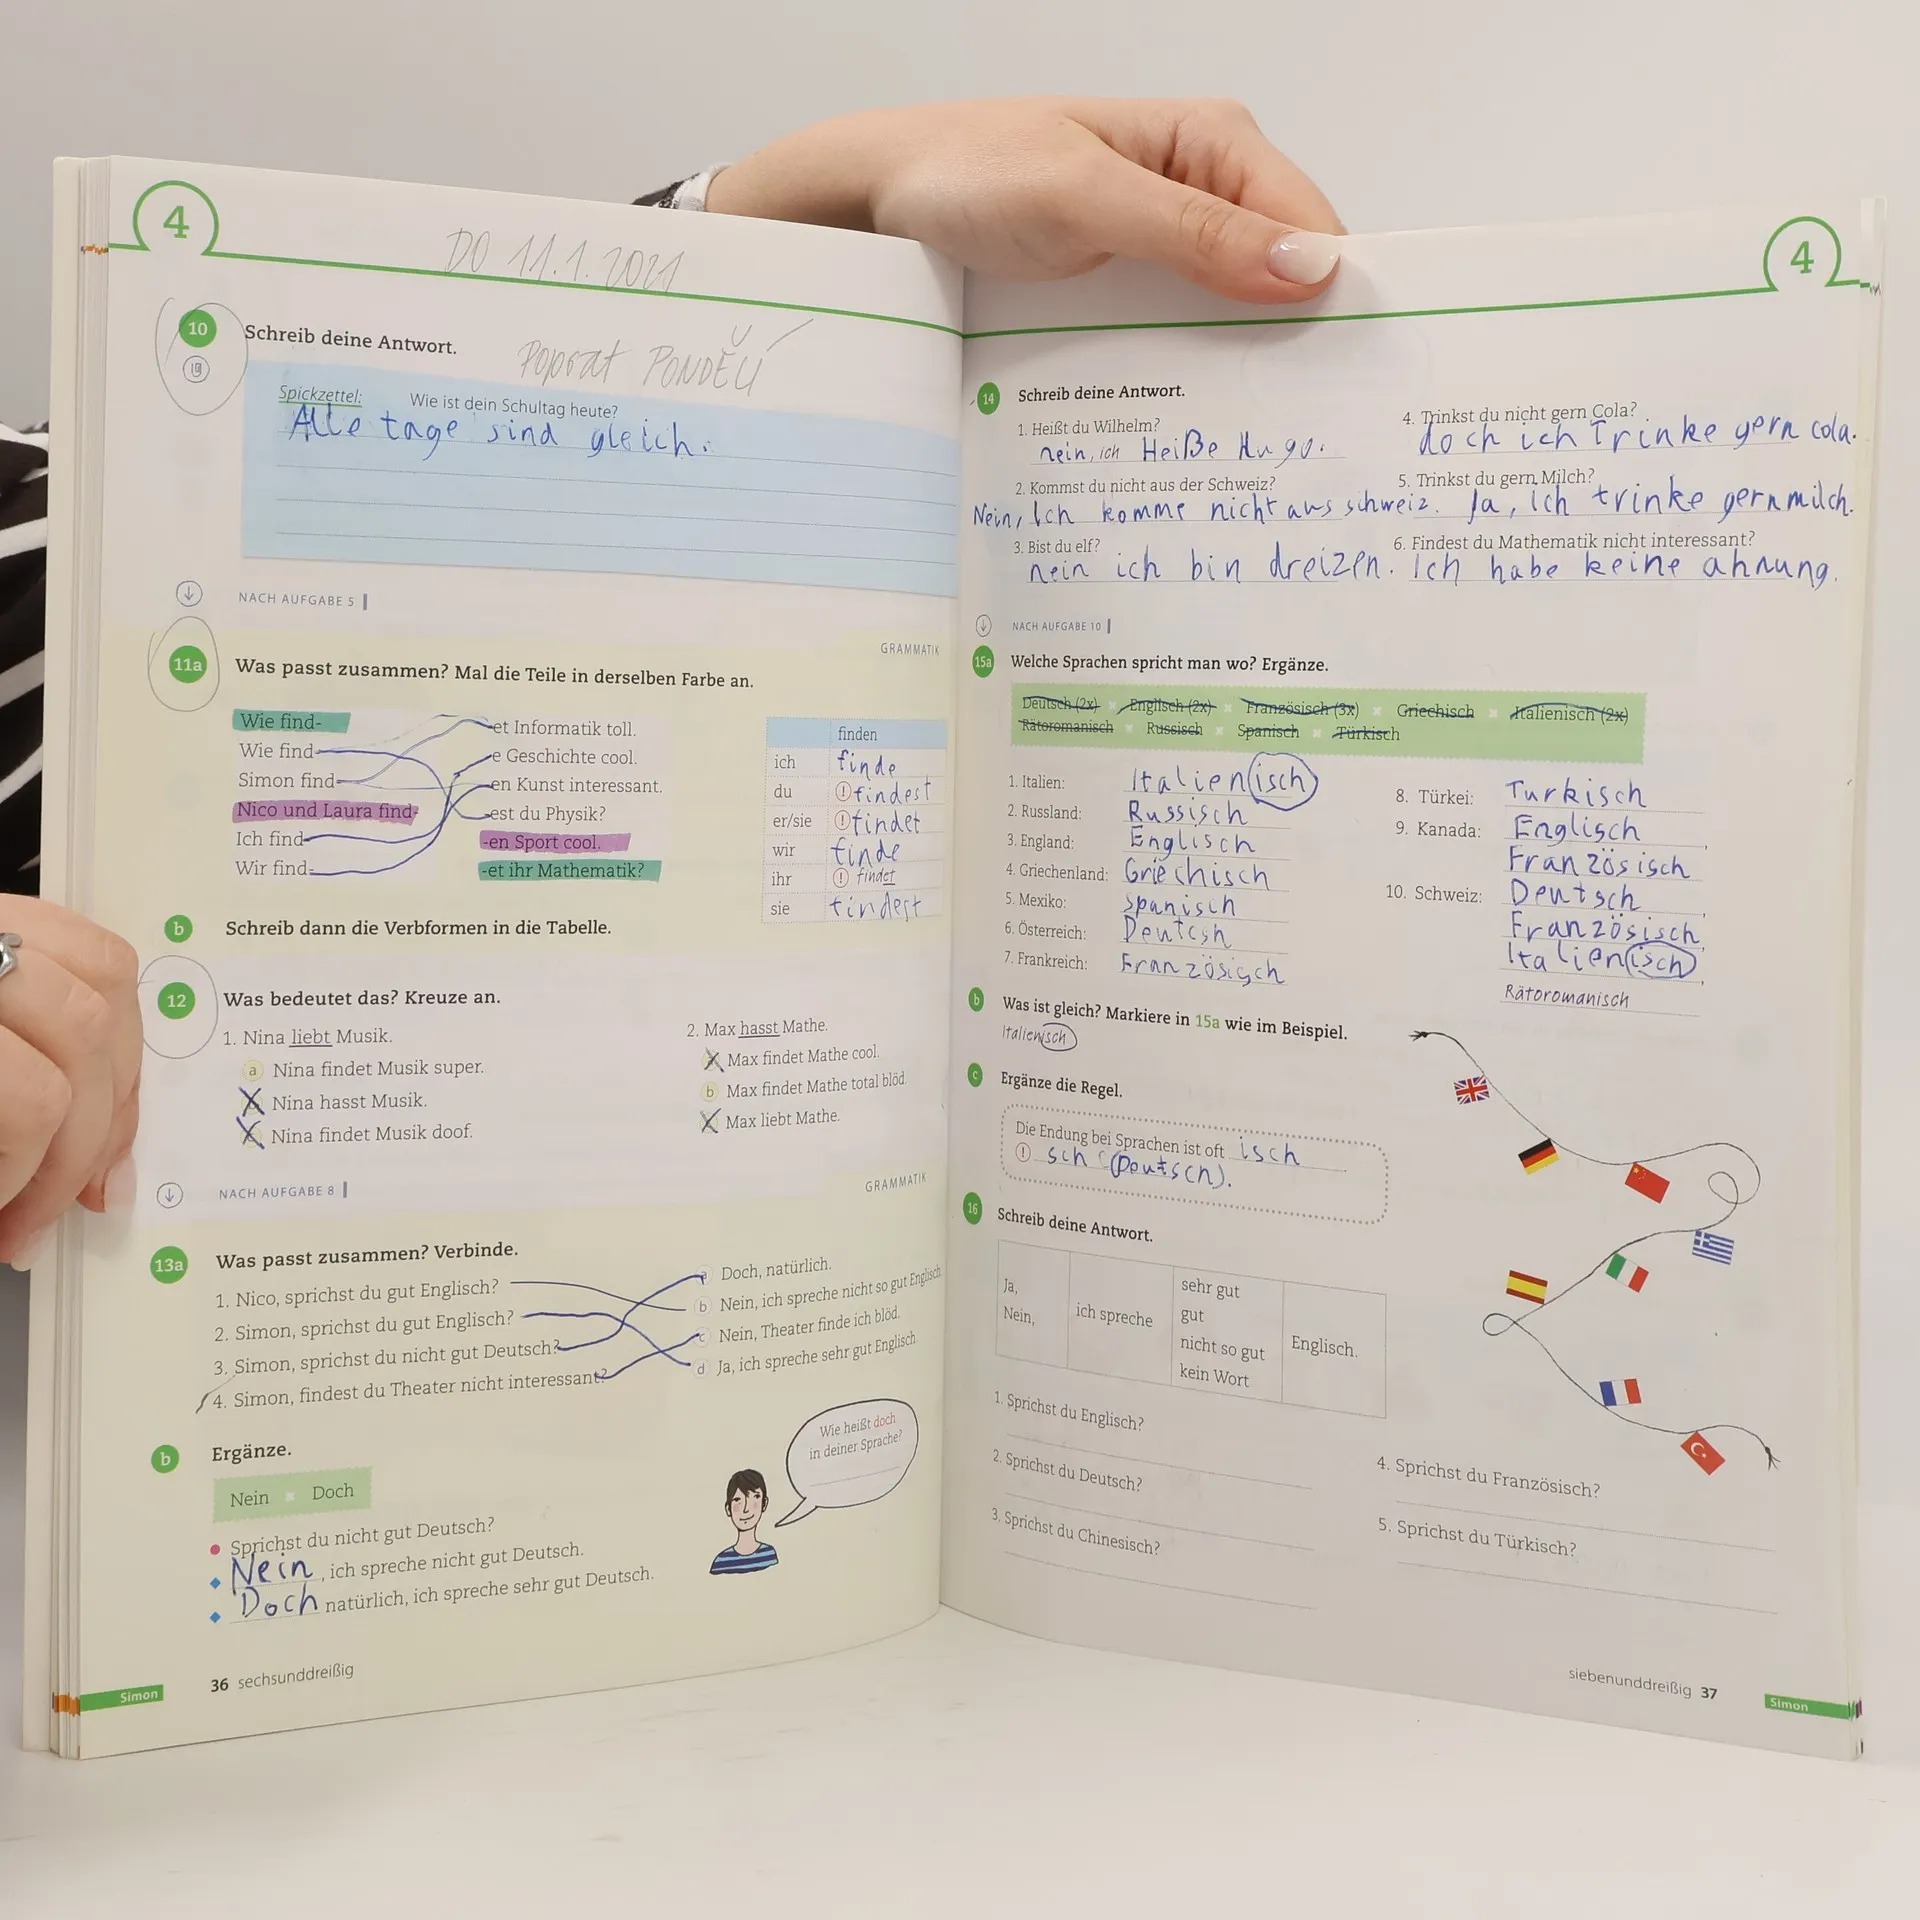 4
DO 11.1.2021
10 Schreib deine Antwort.
Poprat PONDĚLÍ
Spickzettel: Wie ist dein Schultag heute?
Alle tage sind gleich.
NACH AUFGABE 5
GRAMMATIK
11a Was passt zusammen? Mal die Teile in derselben Farbe an.
Wie find-
Wie find-
Simon find-
Nico und Laura find-
Ich find-
Wir find-
-et Informatik toll.
-e Geschichte cool.
-en Kunst interessant.
-est du Physik?
-en Sport cool.
-et ihr Mathematik?
finden
ich finde
du ! findest
er/sie ! findet
wir finde
ihr ! findet
sie findest
b Schreib dann die Verbformen in die Tabelle.
12 Was bedeutet das? Kreuze an.
1. Nina liebt Musik.
a Nina findet Musik super.
Nina hasst Musik.
Nina findet Musik doof.
2. Max hasst Mathe.
Max findet Mathe cool.
b Max findet Mathe total blöd.
Max liebt Mathe.
NACH AUFGABE 8
GRAMMATIK
13a Was passt zusammen? Verbinde.
1. Nico, sprichst du gut Englisch?
2. Simon, sprichst du gut Englisch?
3. Simon, sprichst du nicht gut Deutsch?
4. Simon, findest du Theater nicht interessant?
a Doch, natürlich.
b Nein, ich spreche nicht so gut Englisch
c Nein, Theater finde ich blöd.
d Ja, ich spreche sehr gut Englisch
b Ergänze.
Nein Doch
Sprichst du nicht gut Deutsch?
Nein, ich spreche nicht gut Deutsch.
Doch natürlich, ich spreche sehr gut Deutsch.
Wie heißt doch
in deiner Sprache?
Simon
36 sechsunddreißig
4
14 Schreib deine Antwort.
1. Heißt du Wilhelm?
nein, ich Heiße Hugo.
2. Kommst du nicht aus der Schweiz?
Nein, Ich komme nicht aus schweiz.
3. Bist du elf?
nein ich bin dreizen.
4. Trinkst du nicht gern Cola?
doch ich Trinke gern cola.
5. Trinkst du gern Milch?
Ja, Ich trinke gern milch.
6. Findest du Mathematik nicht interessant?
Ich habe keine ahnung.
NACH AUFGABE 10
15a Welche Sprachen spricht man wo? Ergänze.
Deutsch (2x) Englisch (2x) Französisch (3x) Griechisch Italienisch (2x)
Rätoromanisch Russisch Spanisch Türkisch
1. Italien: Italienisch
2. Russland: Russisch
3. England: Englisch
4. Griechenland: Griechisch
5. Mexiko: spanisch
6. Österreich: Deutcsh
7. Frankreich: Französisch
8. Türkei: Turkisch
9. Kanada: Englisch,
Französisch
10. Schweiz: Deutsch,
Französisch,
Italienisch,
Rätoromanisch
b Was ist gleich? Markiere in 15a wie im Beispiel.
Italienisch
c Ergänze die Regel.
Die Endung bei Sprachen ist oft isch.
! sch (Deutsch).
16 Schreib deine Antwort.
Ja,
Nein,
ich spreche
sehr gut
gut
nicht so gut
kein Wort
Englisch.
1. Sprichst du Englisch?
2. Sprichst du Deutsch?
3. Sprichst du Chinesisch?
4. Sprichst du Französisch?
5. Sprichst du Türkisch?
siebenunddreißig 37
Simon